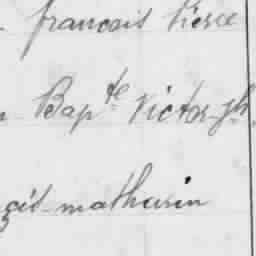 françois Pierre
Bapte Victor jh
mathurin